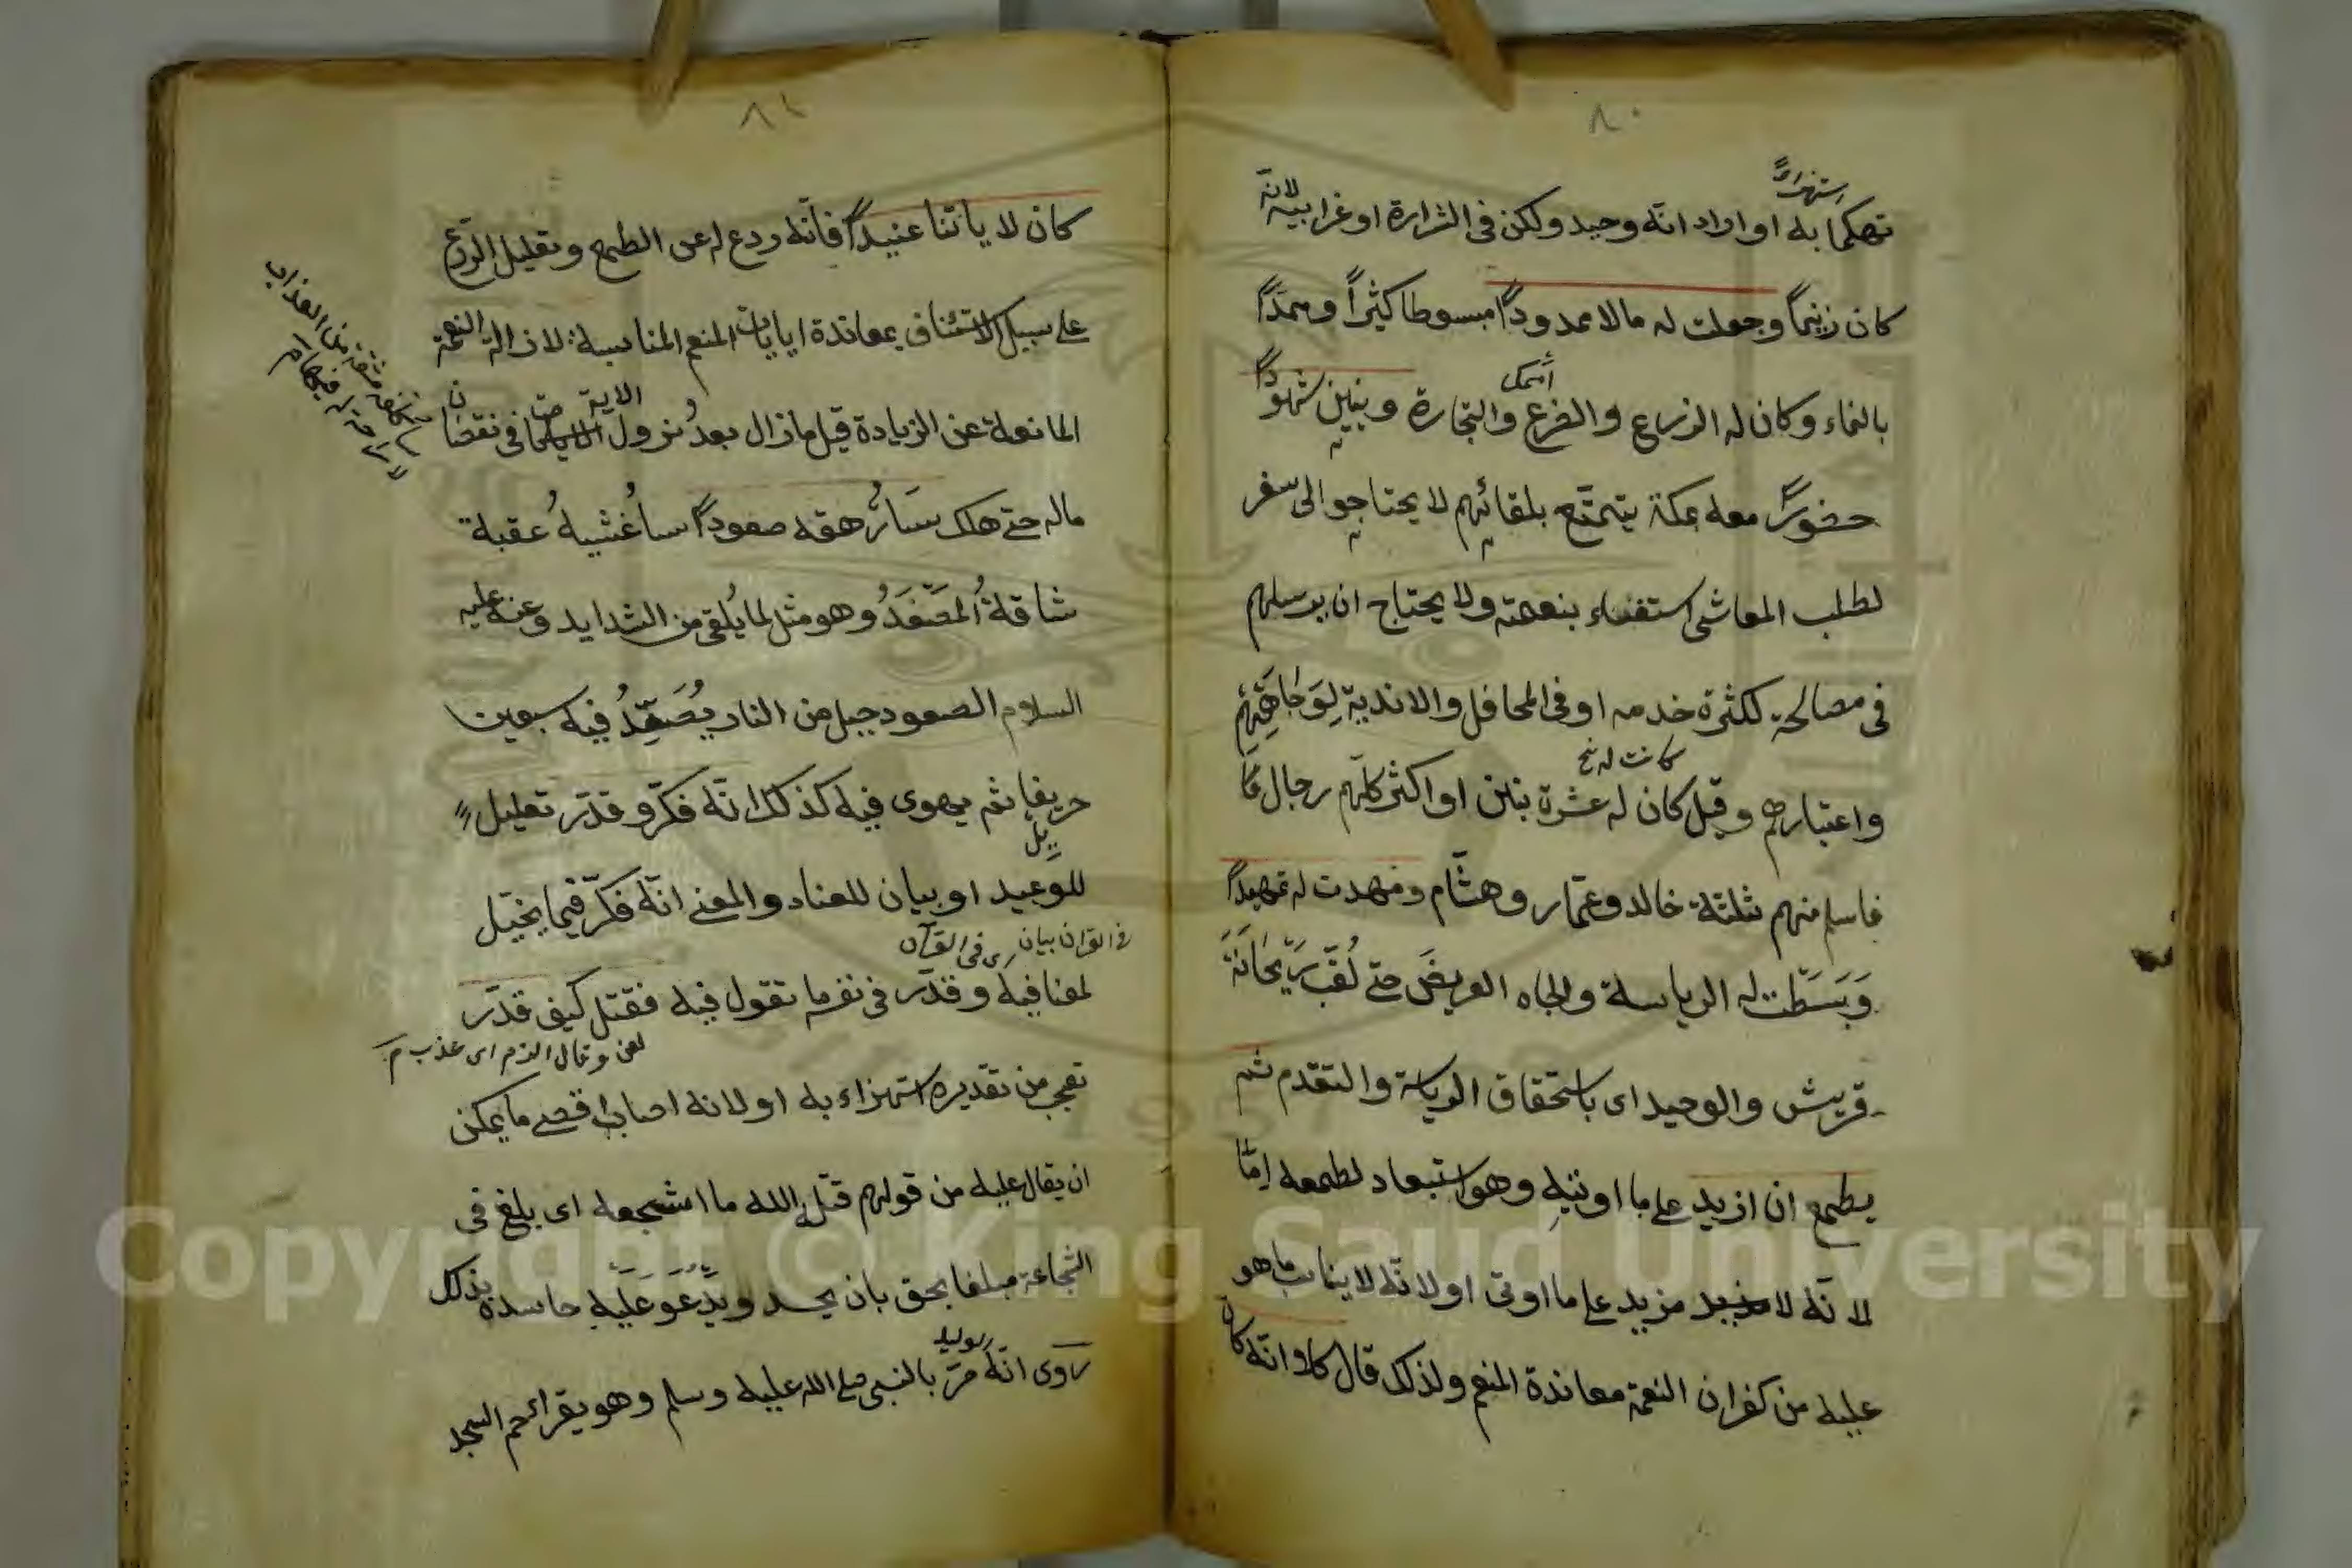 ٨٠
استهزاءً
تهكما به او اراد انه وحيد ولكن في الشرارة او غرابيه لانه
كان زنيماً وجعلت له مالا ممدوداً مبسوطا كثيراً وممدّاً
بالنماء وكان له الزرع والضرع والتجارة وبنين شهوداً
حضوراً معه بمكة يتمتع بلقائهم لا يحتاجوا الى سفر
لطلب المعاش استغناء بنعمته ولا يحتاج ان يرسلهم
في مصالحة لكثرة خدمه او في المحافل والاندية لوجاهتهم
كانت له نخ
واعتبارهم وقيل كان له عشرة بنين او اكثر كلهم رجال
فاسلم منهم ثلثة خالد وعمّار وهشام ومهدت له تمهيداً
وبسطت له الرياسة والجاه العريض حتى لقّب ريحانة
قريش والوحيد اى باستحقاق الرياسة والتقدم ثم
يطمع ان ازيد على ما اوتيه وهو استبعاد لطمعه امّا
لانه لا مزيد على ما اوتى او لانه لا يناسب ما هو
عليه من كفران النعمة معاندة المنعم ولذلك قال كلا انه كان
٨١
كان لا ياتنا عنيداً فانه ردع له عن الطمع وتعليل الردع
على سبيل الاستئناف بمعاندة ايايات المنعم المناسبة لازالة النعمة
الاية
المانعة عن الزيادة قيل ما زال بعد نزول في نقصان
ماله حتى هلك سأرهقه صعوداً ساغشيه عقبة
شاقة المصعد وهو مثل لما يلقى من الشدايد وعنه عليه
السلام الصعود جبل من النار يُصعّد فيه سبعين
خريفا ثم يهوى فيه كذلك انه فكّر وقدّر تعليل
للوعيد او بيان للعناد والمعنى انه فكّر فيما يخيّل
في القران بيان ى في القرآن
لمعنا فيه وقدّر في نفسه ما تقول فيه فقتل كيف قدّر
لعن وقال الزم اى عذب م
تعجب من تقديره استهزاء به او لانه اصاب اقصى ما يمكن
ان يقال عليه من قولهم قتله الله ما اشجعه اى بلغ في
الشجاعة مبلغا بحق بان يحسد ويدعو عليه حاسده بذلك
الوليد
روى انه مرّ بالنبى صلى الله عليه وسلم وهو يقراء حم السجد